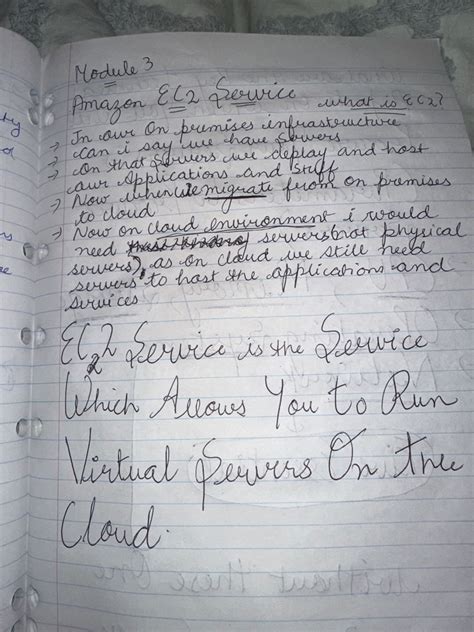 Module 3
Amazon EC2 Service what is EC2?
→ In our On premises infrastructure
→ can i say we have servers
→ On that servers we deploy and host
our Applications and stuff
→ Now when we migrate from on premises
to cloud
→ Now on cloud environment i would
need servers (not physical
servers), as on cloud we still need
servers to host the applications and
services
EC2 Service is the Service
Which Allows You to Run
Virtual Servers On the
Cloud.